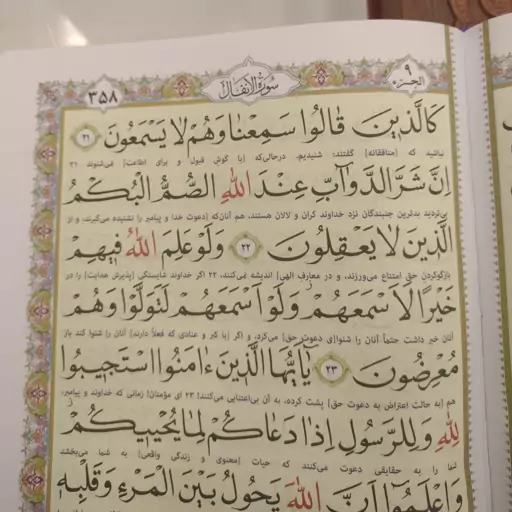 ۳۵۸
سُورَةُ الْأَنْفَال
۹
الجزء
كَالَّذينَ قالُوا سَمِعْنا وَهُمْ لا يَسْمَعُونَ ﴿۲۱﴾
نباشید که [منافقانه] گفتند: شنیدیم. درحالی‌که [با گوش قبول و برای اطاعت] نمی‌شنوند ۲۱
اِنَّ شَرَّ الدَّوابِّ عِنْدَ اللهِ الصُّمُّ الْبُكْمُ
بی‌تردید بدترین جنبندگان نزد خداوند کران و لالان هستند، هم آنان‌که [دعوت خدا و پیامبر را نشنیده می‌گیرند، و از
الَّذينَ لا يَعْقِلُونَ ﴿۲۲﴾ وَلَوْ عَلِمَ اللهُ فيهِمْ
بازگوکردن حق امتناع می‌ورزند، و در معارف الهی] اندیشه نمی‌کنند، ۲۲ اگر خداوند شایستگی [پذیرش هدایت] را در
خَيْرًا لَاَسْمَعَهُمْ وَلَوْ اَسْمَعَهُمْ لَتَوَلَّوْا وَهُمْ
آنان خبر داشت حتماً آنان را شنوا[ی دعوت حق] می‌کرد، و اگر [با کبر و عنادی که فعلاً دارند] آنان را شنوا کند باز
مُعْرِضُونَ ﴿۲۳﴾ يا اَيُّهَا الَّذينَ ءامَنُوا اسْتَجيبُوا
هم [به حالت اعتراض به دعوت حق] پشت کرده، به آن بی‌اعتنایی می‌کنند! ۲۳ ای مؤمنان! زمانی که خداوند و پیامبر،
لِلّٰهِ وَلِلرَّسُولِ اِذا دَعاكُمْ لِما يُحْييكُمْ
شما را به حقایقی دعوت می‌کنند که حیات [معنوی و زندگی واقعی] به شما می‌بخشد
وَاعْلَمُوا اَنَّ اللهَ يَحُولُ بَيْنَ الْمَرْءِ وَقَلْبِهِ